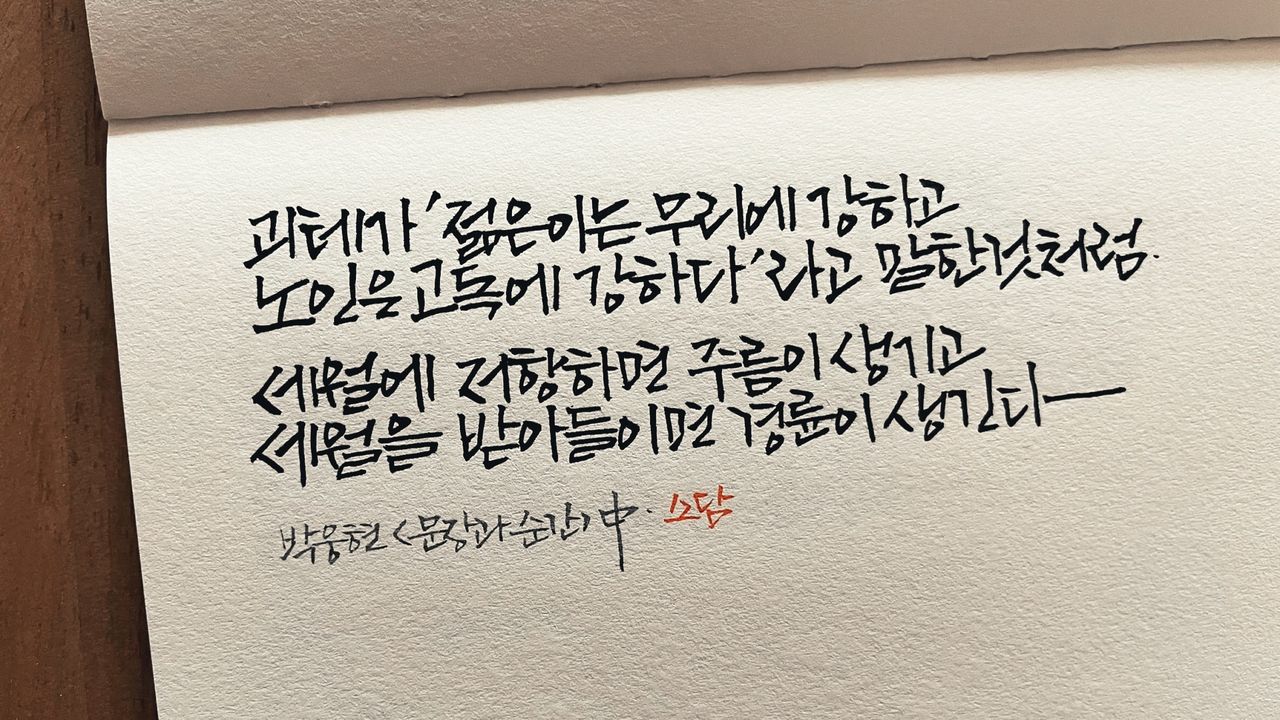 괴테가 '젊은이는 무리에 강하고
노인은 고독에 강하다'라고 말한것처럼.
세월에 저항하면 주름이 생기고
세월을 받아들이면 경륜이 생긴다―
박웅현 <문장과 순간> 中. 소담